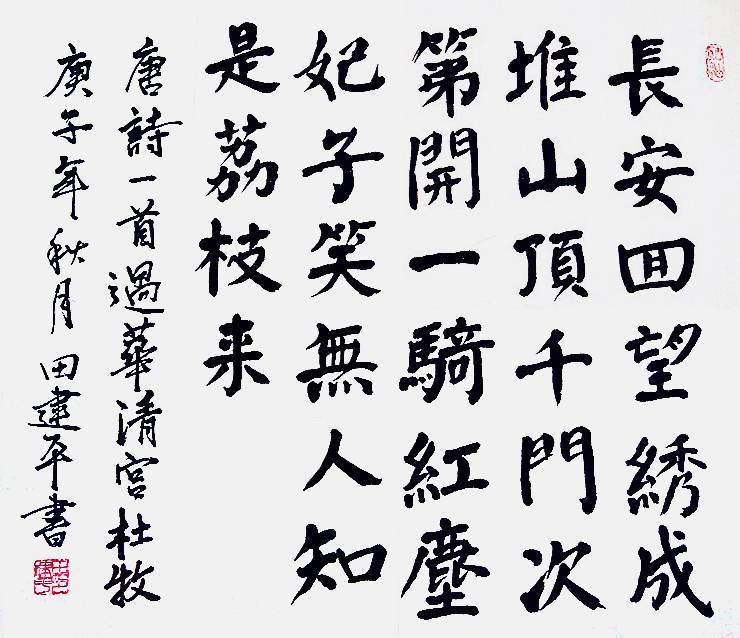 長安囬望綉成
堆山頂千門次
第開一騎紅塵
妃子笑無人知
是荔枝来
唐詩一首過華清宮杜牧
庚子年秋月田建平書